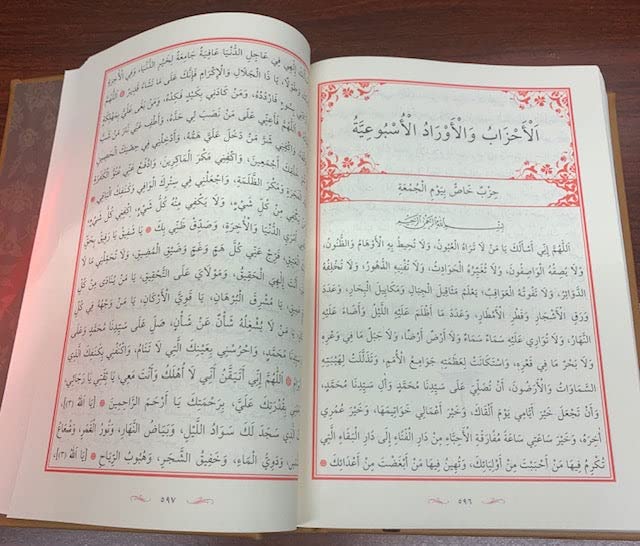 اَلْأَحْزَابُ وَالْأَوْرَادُ الْأُسْبُوعِيَّةُ
حِزْبٌ خَاصٌّ بِيَوْمِ الْجُمُعَةِ
بِسْمِ اللهِ الرَّحْمٰنِ الرَّحِيمِ
اَللّٰهُمَّ إِنِّي أَسْأَلُكَ يَا مَنْ لَا تَرَاهُ الْعُيُونُ، وَلَا تُحِيطُ بِهِ الْأَوْهَامُ وَالظُّنُونُ،
وَلَا يَصِفُهُ الْوَاصِفُونَ، وَلَا تُغَيِّرُهُ الْحَوَادِثُ، وَلَا تُفْنِيهِ الدُّهُورُ، وَلَا تُخْلِفُهُ
الدَّوَائِرُ، وَلَا تَفُوتُهُ الْعَوَاقِبُ، يَعْلَمُ مَثَاقِيلَ الْجِبَالِ وَمَكَايِيلَ الْبِحَارِ، وَعَدَدَ
وَرَقِ الْأَشْجَارِ وَقَطْرِ الْأَمْطَارِ، وَعَدَدَ مَا أَظْلَمَ عَلَيْهِ اللَّيْلُ وَأَضَاءَ عَلَيْهِ
النَّهَارُ، وَلَا تُوَارِي عَلَيْهِ سَمَاءٌ سَمَاءً وَلَا أَرْضٌ أَرْضًا، وَلَا جَبَلٌ مَا فِي وَعْرِهِ
وَلَا بَحْرٌ مَا فِي قَعْرِهِ، وَاسْتَكَانَتْ لِعَظَمَتِهِ جَوَامِعُ الْأُمَمِ، وَتَذَلَّلَتْ لِهَيْبَتِهِ
السَّمَاوَاتُ وَالْأَرَضُونَ، أَنْ تُصَلِّيَ عَلَى سَيِّدِنَا مُحَمَّدٍ وَآلِ سَيِّدِنَا مُحَمَّدٍ،
وَأَنْ تَجْعَلَ خَيْرَ أَيَّامِي يَوْمَ أَلْقَاكَ، وَخَيْرَ أَعْمَالِي خَوَاتِيمَهَا، وَخَيْرَ عُمْرِي
آخِرَهُ، وَخَيْرَ سَاعَتِي سَاعَةَ مُفَارَقَةِ الْأَحِبَّاءِ مِنْ دَارِ الْفَنَاءِ إِلَى دَارِ الْبَقَاءِ الَّتِي
تُكْرِمُ فِيهَا مَنْ أَحْبَبْتَ مِنْ أَوْلِيَائِكَ، وَتُهِينُ فِيهَا مَنْ أَبْغَضْتَ مِنْ أَعْدَائِكَ
٥٩٦
إِلٰهِي فِي عَاجِلِ الدُّنْيَا عَافِيَةً جَامِعَةً لِخَيْرِ الدُّنْيَا، وَفِي الْآخِرَةِ
يَا ذَا الْجَلَالِ وَالْإِكْرَامِ فَإِنَّكَ عَلَى مَا تَشَاءُ قَدِيرٌ اَللّٰهُمَّ
بِسُوءٍ فَارْدُدْهُ، وَمَنْ كَادَنِي بِكَيْدٍ فَكِدْهُ، وَمَنْ بَغَى عَلَيَّ بِهَلَكَةٍ
اَللّٰهُمَّ فَأَعِنِّي عَلَى مَنْ نَصَبَ لِي حَدَّهُ، وَأَطْفِ عَنِّي نَارَ مَنْ شَبَّ
وَاكْفِنِي شَرَّ مَنْ دَخَلَ عَلَيَّ هَمُّهُ، وَأَدْخِلْنِي فِي حِصْنِكَ الْحَصِينِ
أَجْمَعِينَ، وَاكْفِنِي مَكْرَ الْمَاكِرِينَ، وَادْفَعْ عَنِّي عُتُوَّ الْكَفَرَةِ
الظَّلَمَةِ، وَاجْعَلْنِي فِي سِتْرِكَ الْوَاقِي وَكَنَفِكَ
مِنْ كُلِّ شَيْءٍ، وَلَا يَكْفِي مِنْهُ كُلُّ شَيْءٍ، اِكْفِنِي كُلَّ شَيْءٍ
الدُّنْيَا وَالْآخِرَةِ، وَصَدِّقْ ظَنِّي بِكَ يَا شَفِيقُ يَا رَفِيقُ بِحَقِّ
فَرِّجْ عَنِّي كُلَّ هَمٍّ وَغَمٍّ وَضِيقِ الْمَضِيقِ، وَلَا تُحَمِّلْنِي مَا لَا
أَنْتَ إِلٰهِيَ الْحَقِيقُ، وَمَوْلَايَ عَلَى التَّحْقِيقِ، يَا مَنْ
يَا مُشْرِقَ الْبُرْهَانِ، يَا قَوِيَّ الْأَرْكَانِ، يَا مَنْ وَجْهُهُ فِي كُلِّ
مَنْ لَا يَشْغَلُهُ شَأْنٌ عَنْ شَأْنٍ، صَلِّ عَلَى سَيِّدِنَا مُحَمَّدٍ وَعَلَى
مُحَمَّدٍ، وَاحْرُسْنِي بِعَيْنِكَ الَّتِي لَا تَنَامُ، وَاكْنُفْنِي بِكَنَفِكَ الَّذِي
اَللّٰهُمَّ إِنِّي أَتَيَقَّنُ أَنِّي لَا أَهْلَكُ وَأَنْتَ مَعِي، يَا ثِقَتِي يَا رَجَائِي،
بِقُدْرَتِكَ عَلَيَّ، بِرَحْمَتِكَ يَا أَرْحَمَ الرَّاحِمِينَ [يَا اَللهُ (١٣)].
سَجَدَ لَكَ سَوَادُ اللَّيْلِ، وَبَيَاضُ النَّهَارِ، وَنُورُ الْقَمَرِ، وَشُعَاعُ
وَدَوِيُّ الْمَاءِ، وَحَفِيفُ الشَّجَرِ، وَهُبُوبُ الرِّيَاحِ [يَا اَللهُ (١٣)].
٥٩٧